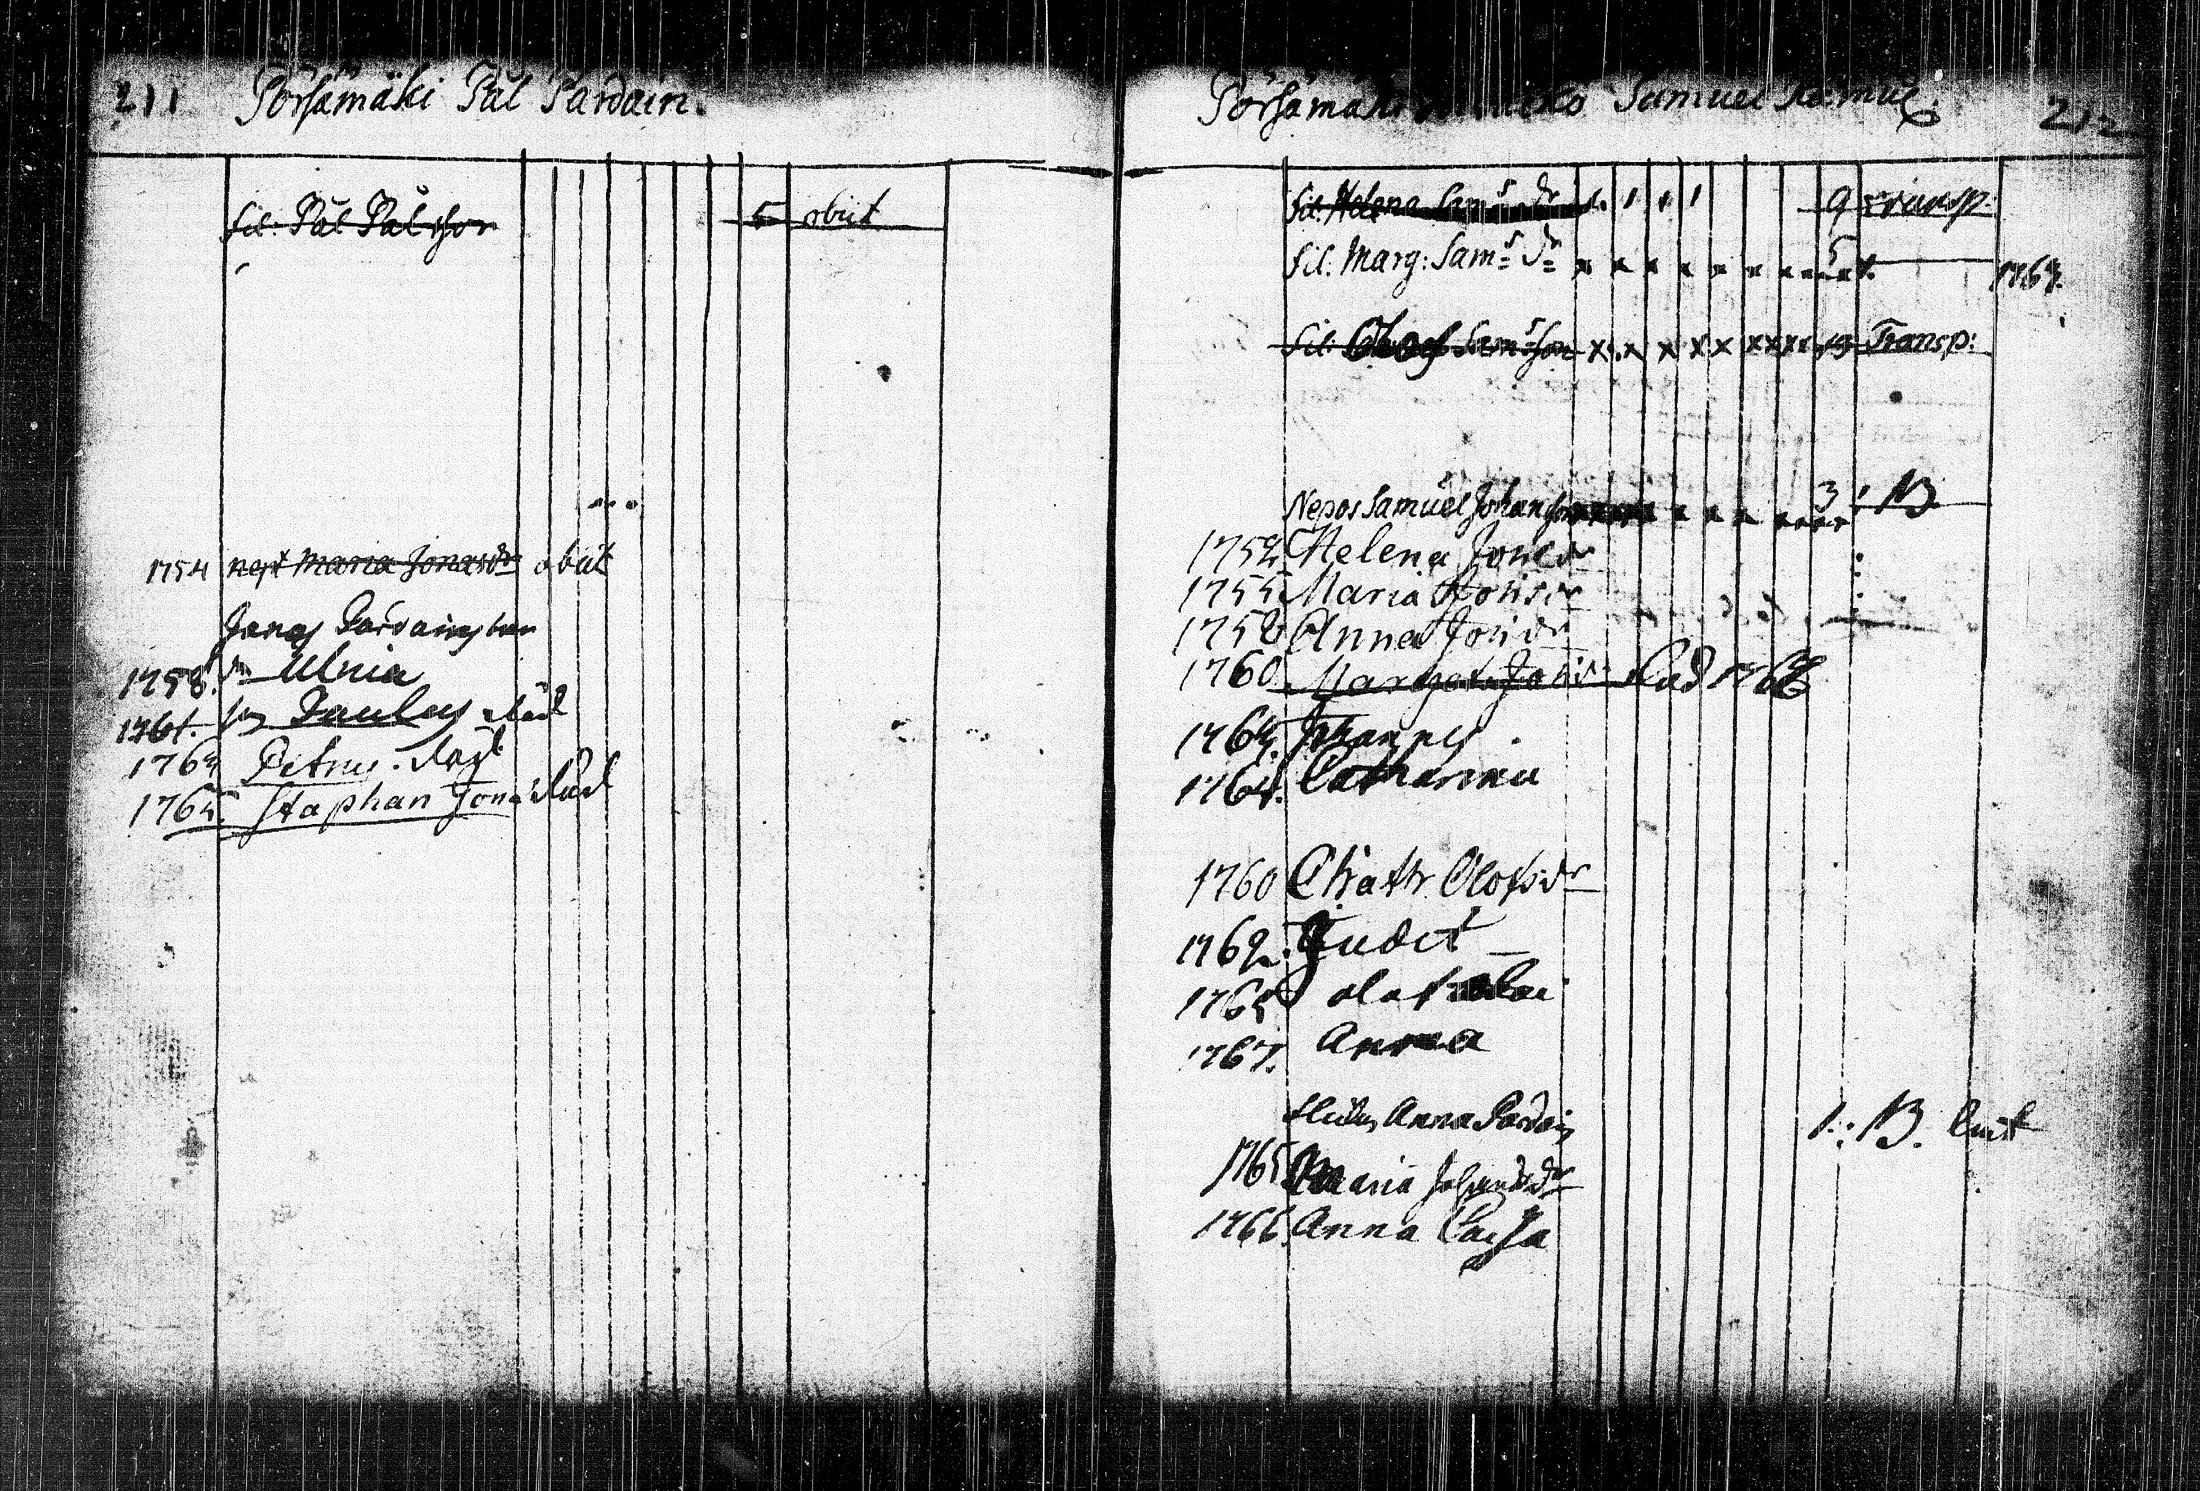 211 Pörsämäki Pål Pardain.
fil: Pål Pålsson 5 obiit
1754 nept Maria Jonasdr obiit
Jonas Pardains barn
1758. dr Ulrica
1761. sn Paulus död
1763 Petrus. död
1765. Staphan Jona död
Pörsämäki Samuel 212
fil: Helena Sams dr 1 1 1 1 9 transp:
fil: Marg: Sams Dr x x x x x x x 5 1763.
fil: Olof Samsson x x x x x x x x x Transp:
Nepos Samuel Johansson x x x x x x x 3 1 B
1752 Helena Jonsdr
1755 Maria Jonsdr
1758 Anna Jonsdr
1760 Margeta Jonsdr död 1766
1763. Johannes
1764. Catharina
1760 Chatr Olofsdr
1762. Judit
1765 olof
1767. Anna
Anna Pardain 1: B.
1765 Maria Johansdr
1766. Anna Caisa